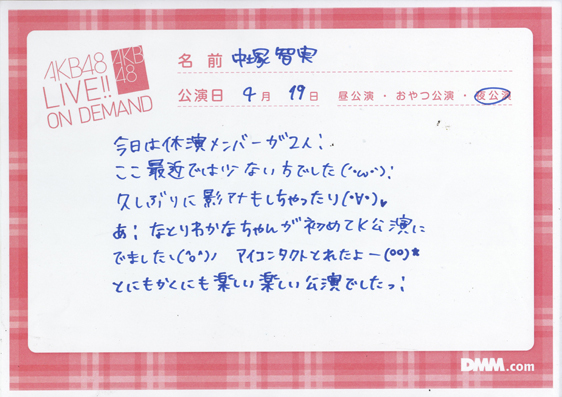 AKB48
LIVE!!
ON DEMAND
AKB
48
名前 中塚智実
公演日 4月 19日 昼公演・おやつ公演・夜公演
今日は休演メンバーが2人!
ここ最近では少ない方でした(・ω・)!
久しぶりに影アナもしちゃったり(・∀・)♥
あ!なとりわかなちゃんが初めてK公演に
でましたヽ(°o°)ノ アイコンタクトとれたよー(oo)*
とにもかくにも楽しい楽しい公演でしたっ!
DMM.com